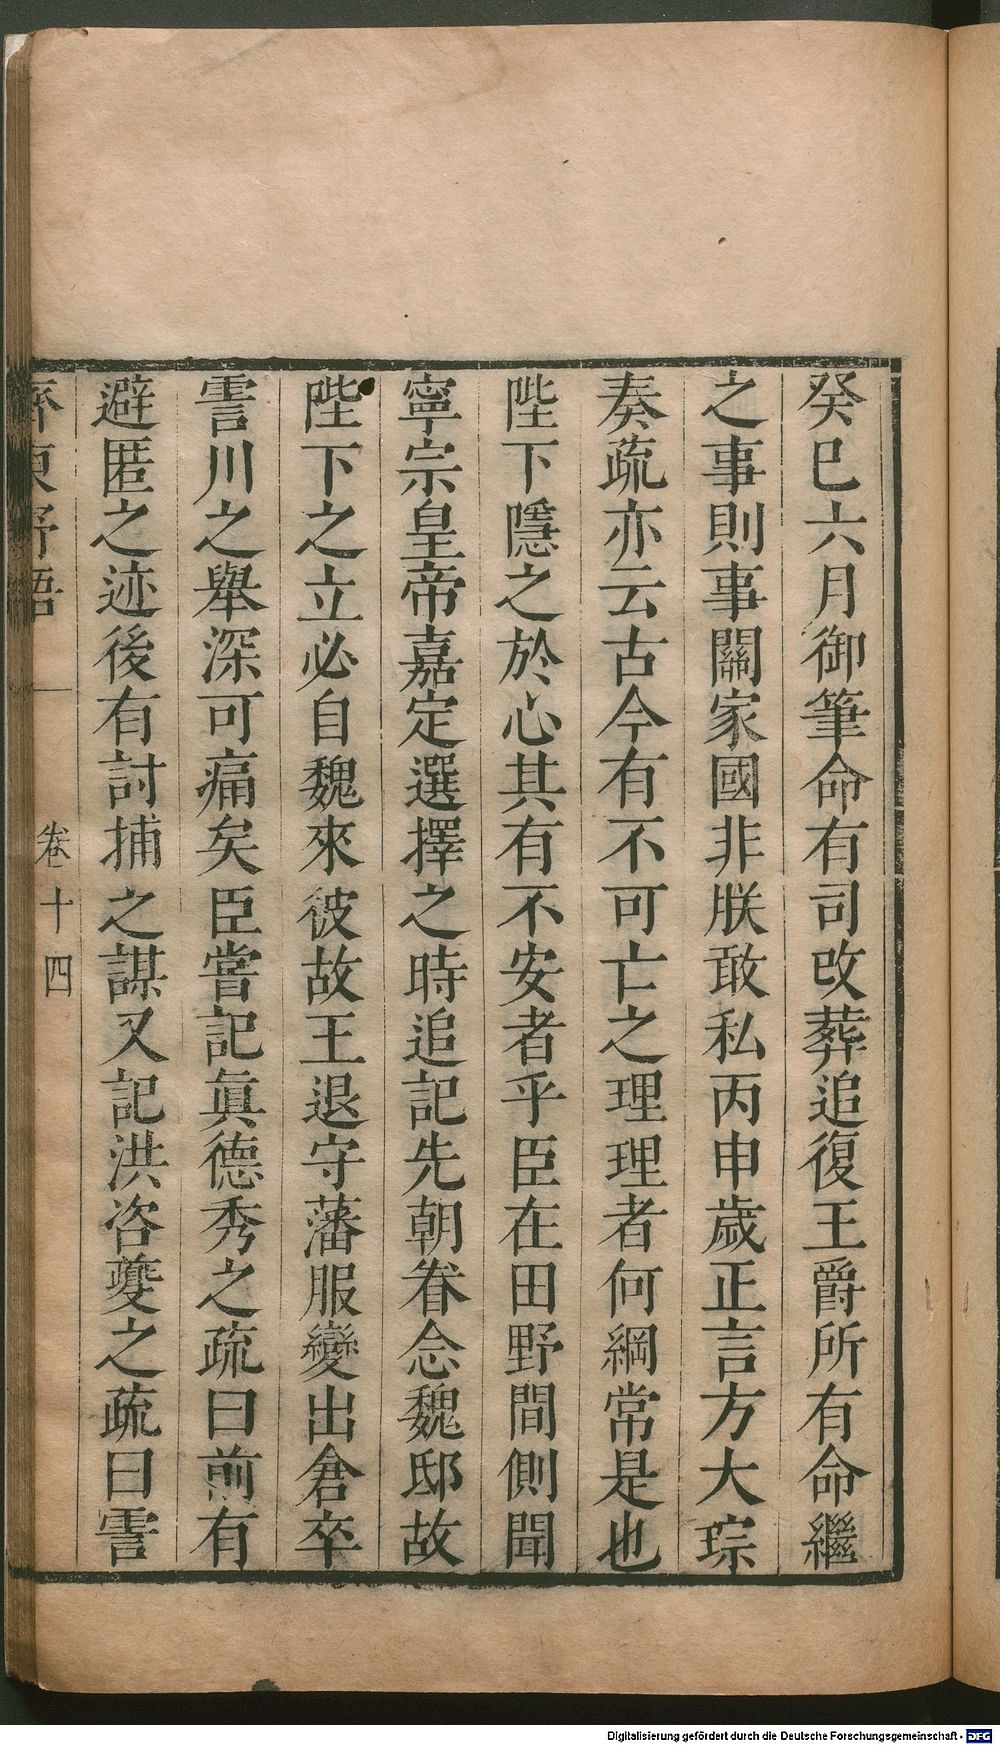 癸巳六月御筆命有司改葬追復王爵所有命繼
之事則事關家國非朕敢私丙申歲正言方大琮
奏疏亦云古今有不可亡之理理者何綱常是也
陛下隱之於心其有不安者乎臣在田野間側聞
寧宗皇帝嘉定選擇之時追記先朝眷念魏邸故
陛下之立必自魏來彼故王退守藩服變出倉卒
霅川之舉深可痛矣臣嘗記眞德秀之疏曰前有
避匿之迹後有討捕之謀又記洪咨夔之疏曰霅
齊東野語
卷十四
Digitalisierung gefördert durch die Deutsche Forschungsgemeinschaft - DFG